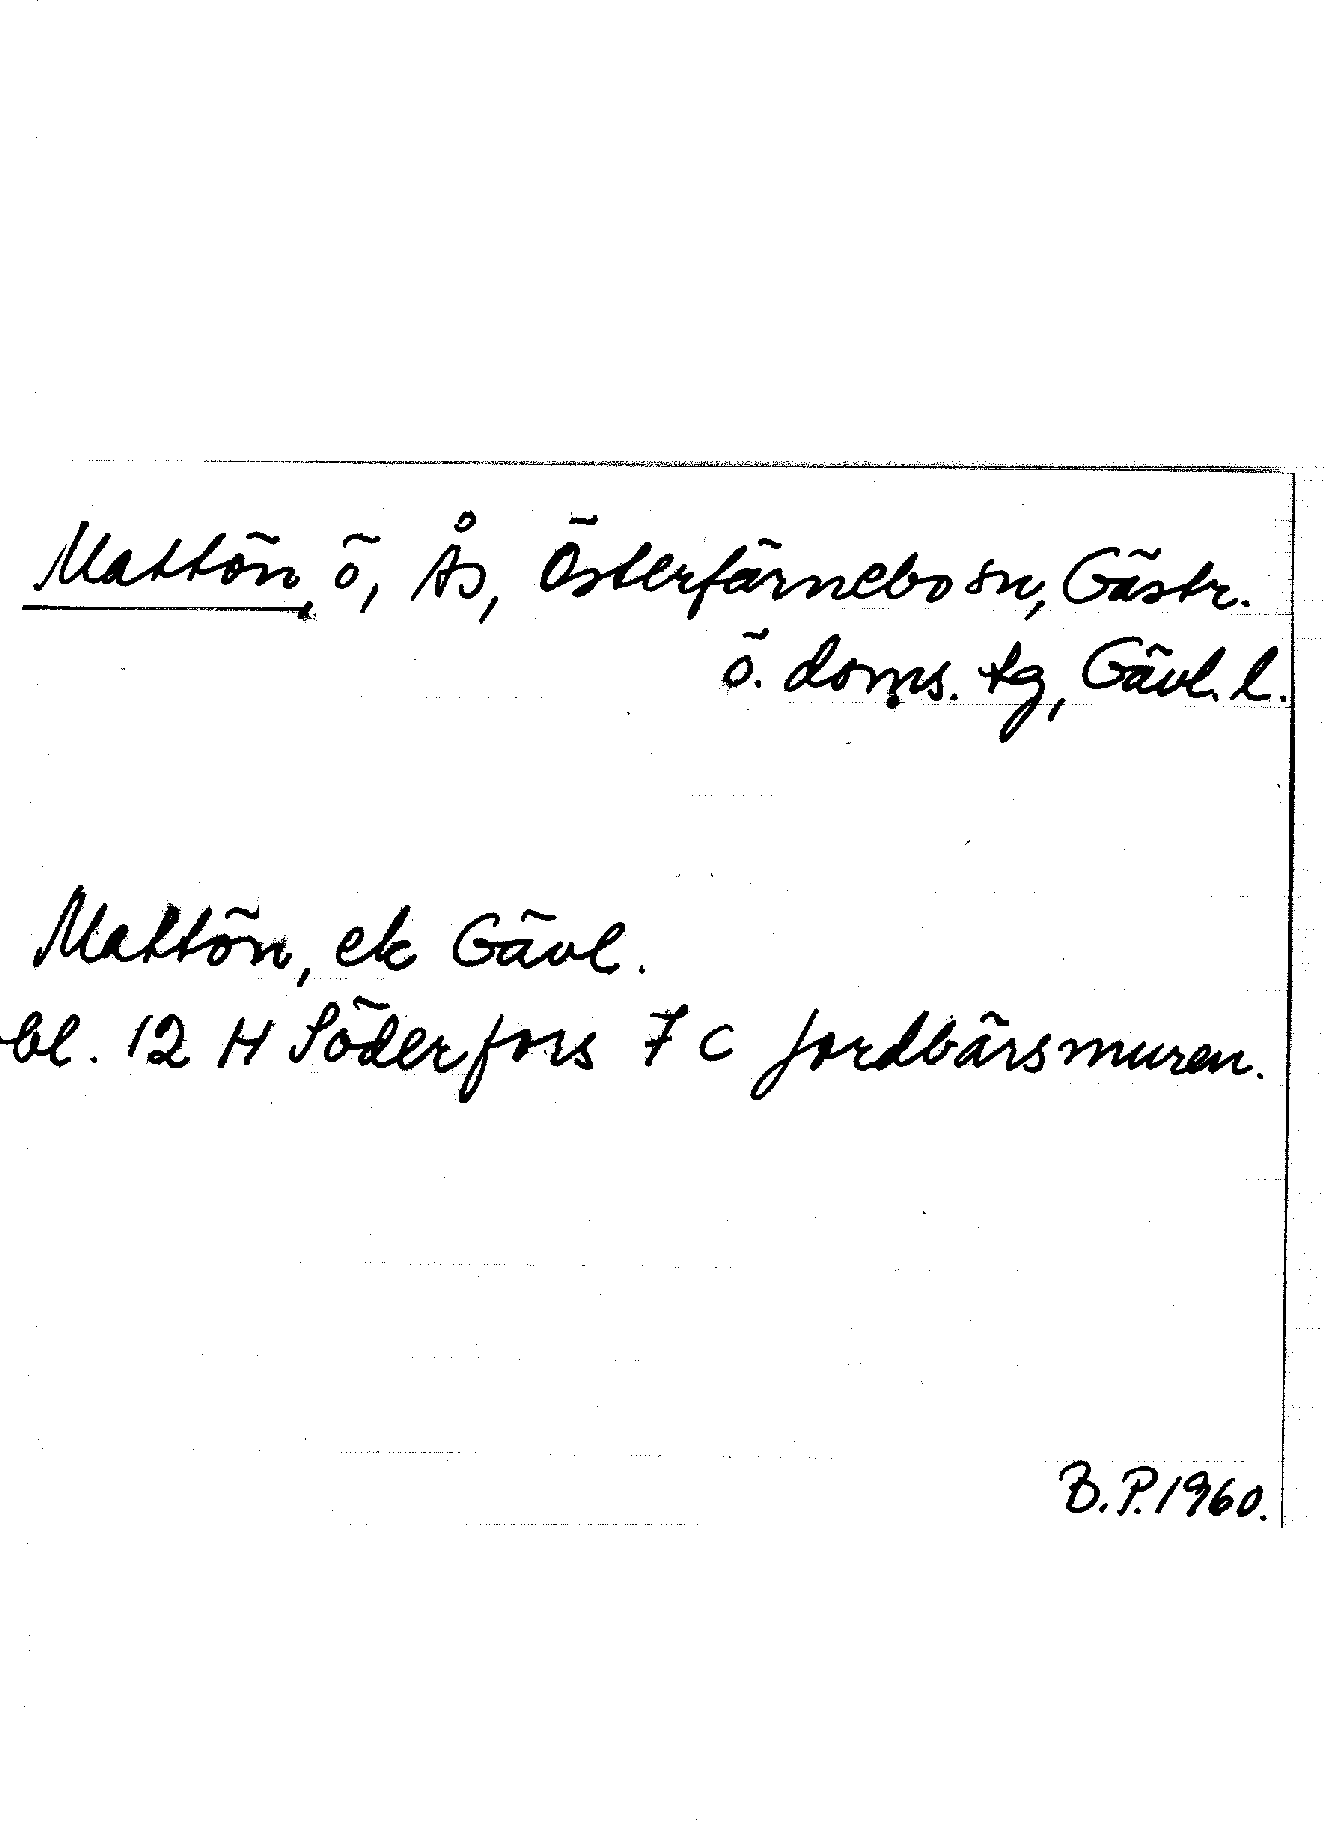 Mattön, ö, Ås, Österfärnebo sn, Gästr.
ö. doms. tg, Gävl. l.
Mattön, ek Gävl.
bl. 12 H Söderfors 7 c Jordbärsmuren.
B.P. 1960.